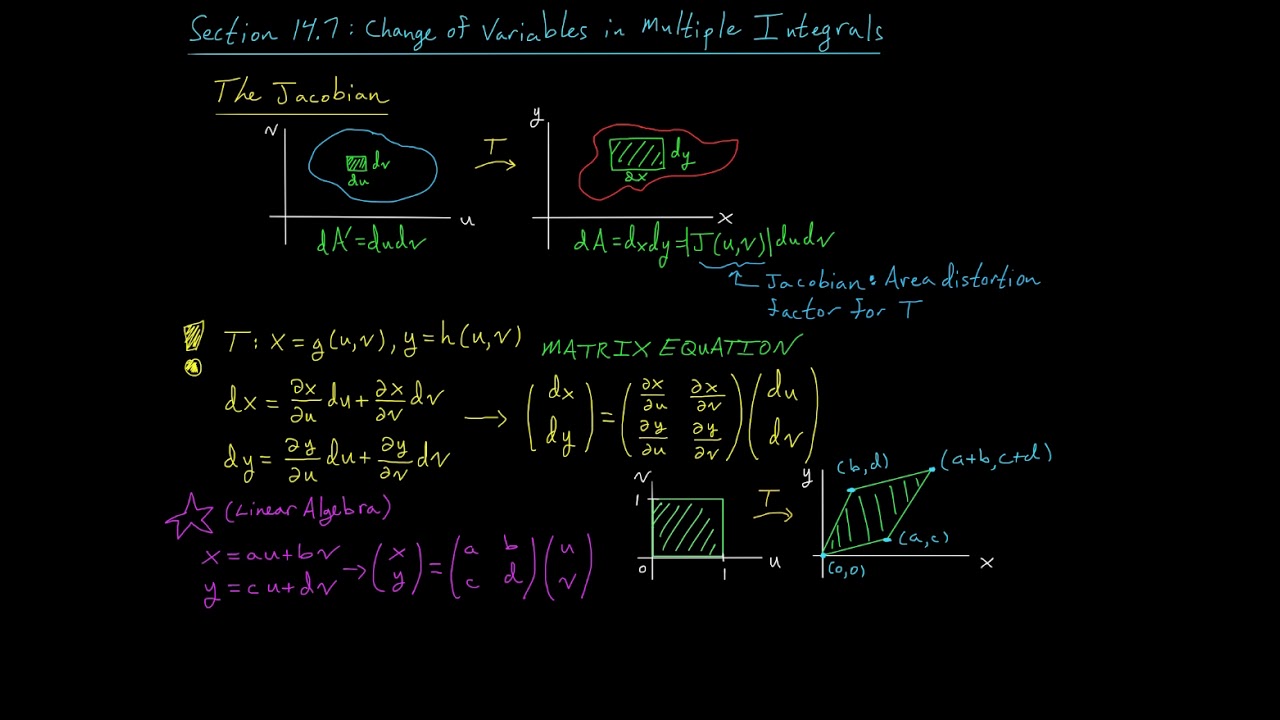 Section 14.7: Change of Variables in Multiple Integrals
The Jacobian
v
dv
du
u
T
y
dy
dx
x
dA' = dudv
dA = dxdy = |J(u,v)| dudv
Jacobian: Area distortion
factor for T
T: x = g(u,v), y = h(u,v)
MATRIX EQUATION
dx = ∂x/∂u du + ∂x/∂v dv
dy = ∂y/∂u du + ∂y/∂v dv
→ (dx dy) = (∂x/∂u ∂x/∂v ∂y/∂u ∂y/∂v) (du dv)
(Linear Algebra)
x = au + bv
y = cu + dv
→ (x y) = (a b c d) (u v)
v
1
0
1
u
T
y
(b,d)
(a+b, c+d)
(a,c)
(0,0)
x